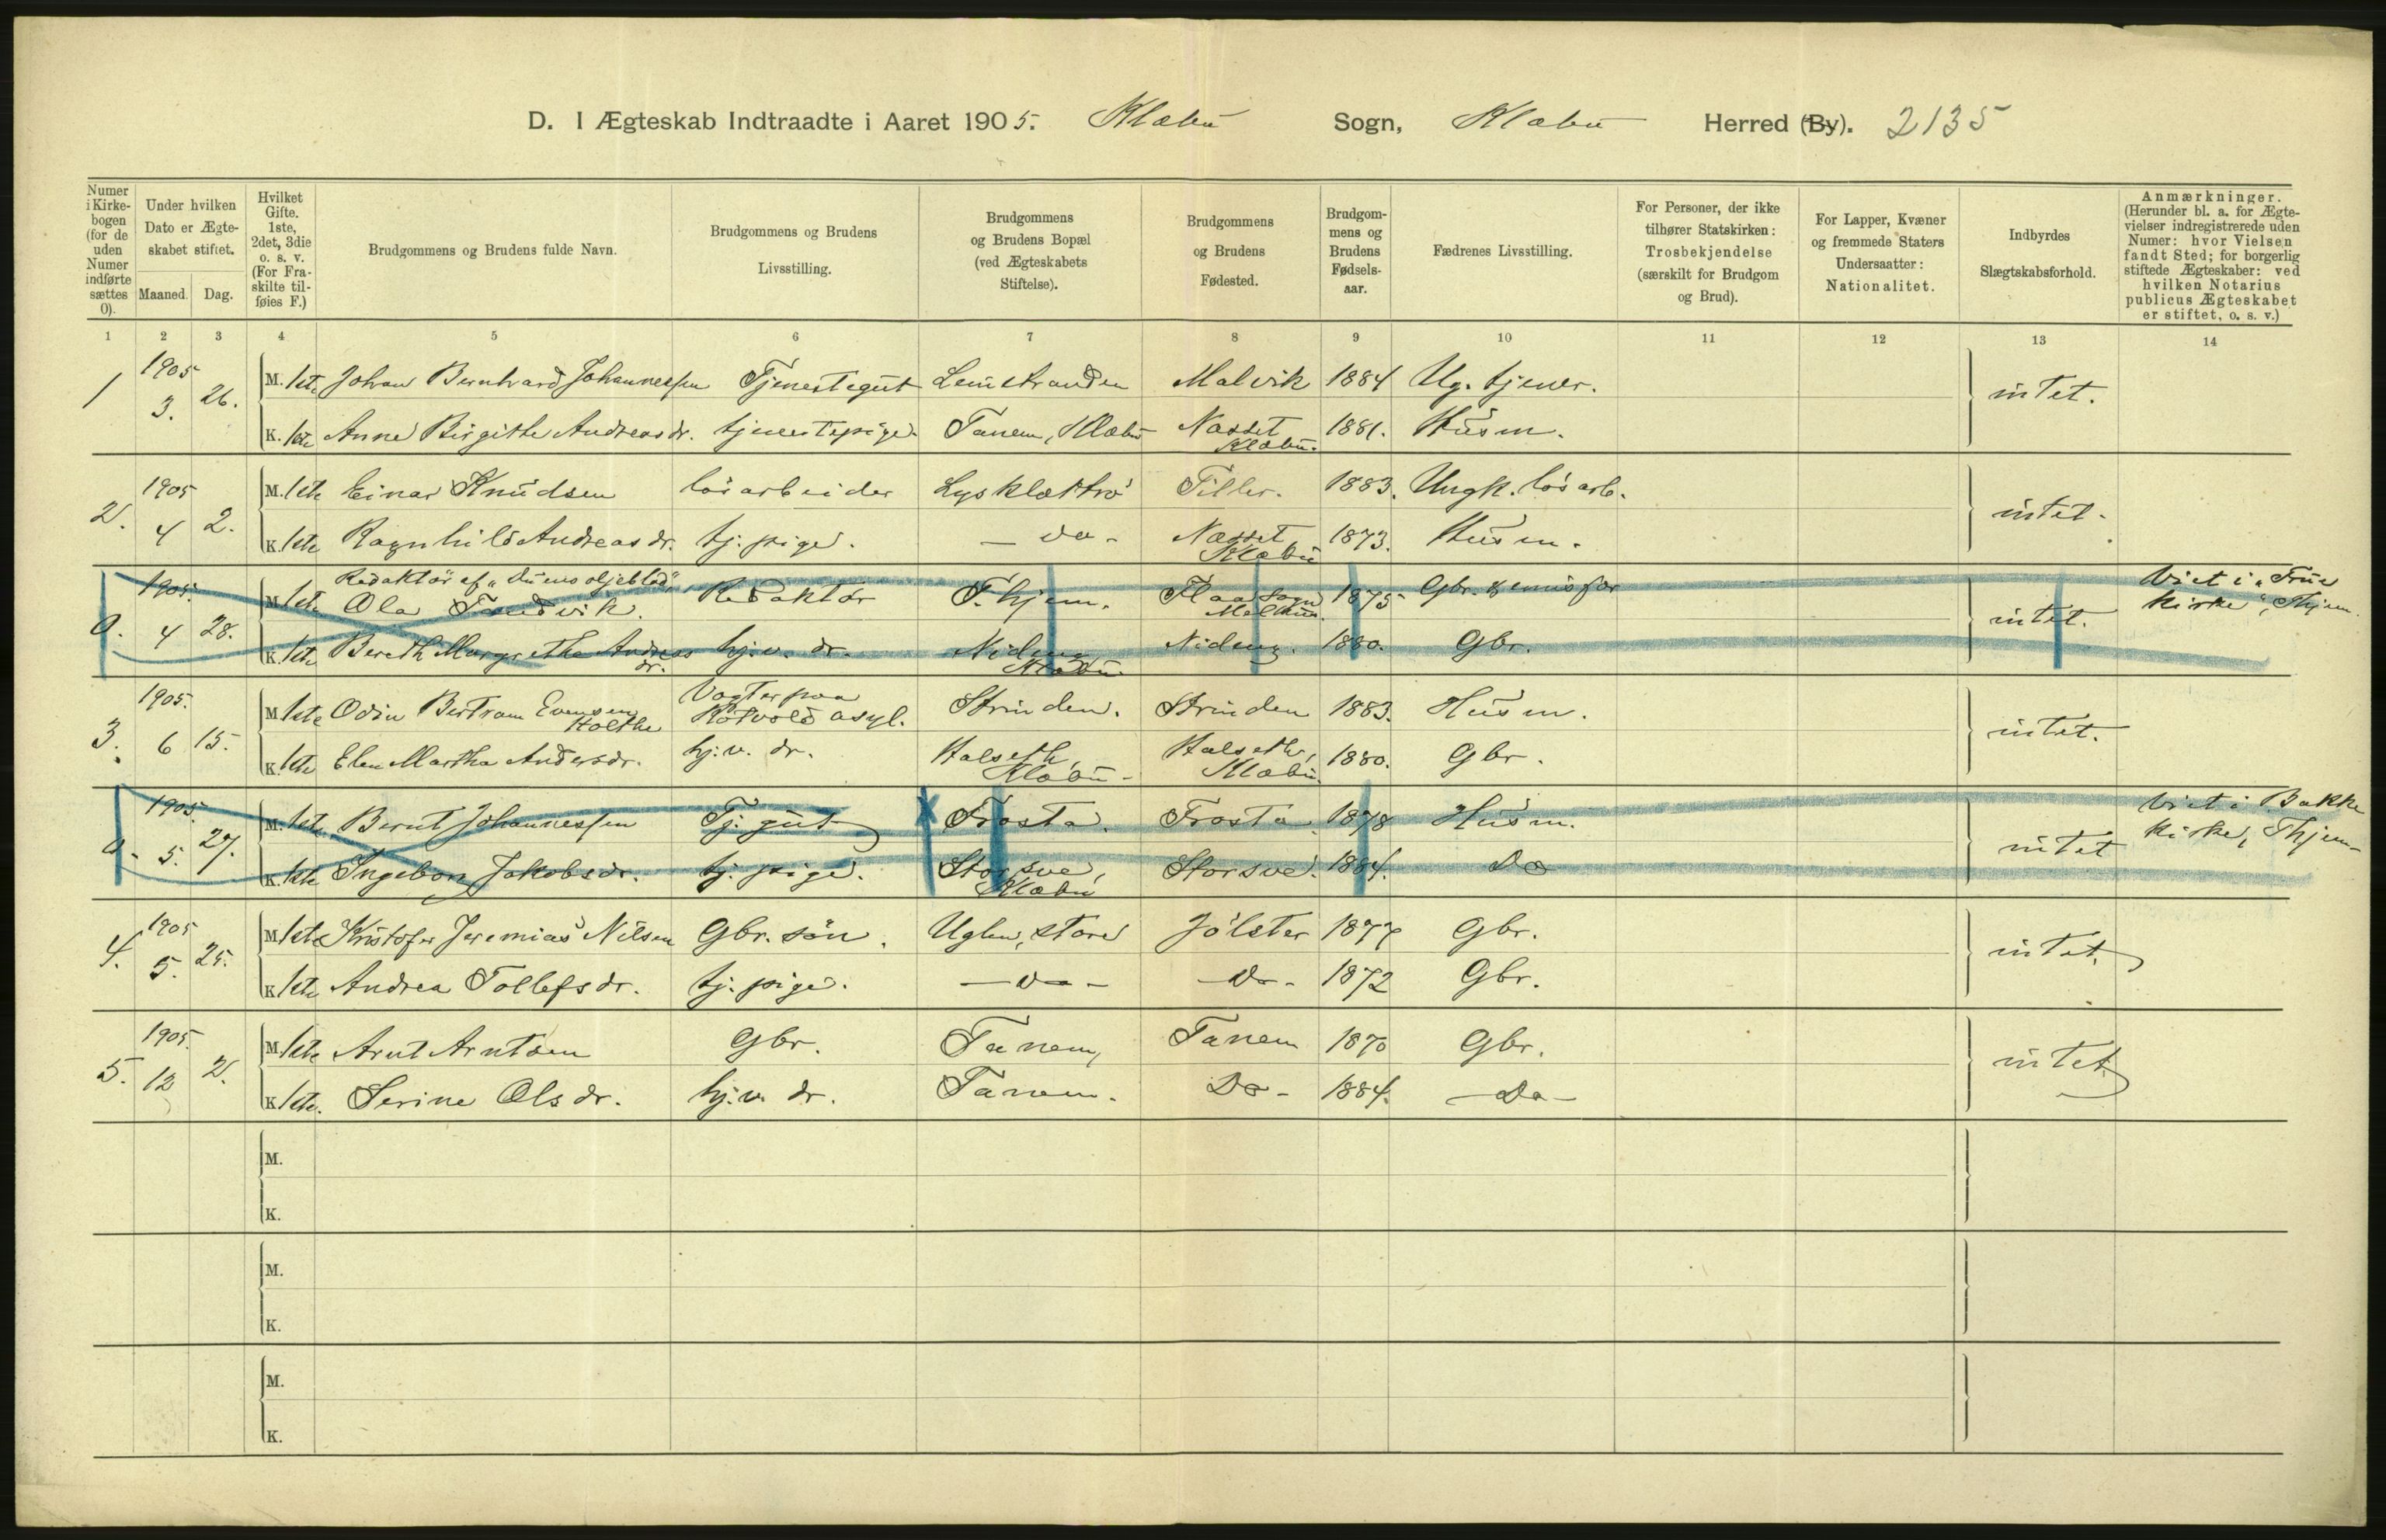 D. I Ægteskab Indtraadte i Aaret 1905. Klæbu Sogn, Klæbu Herred (By). 2135
Numer i Kirkebogen (for de uden Numer indførte sættes 0).
Under hvilken Dato er Ægteskabet stiftet.
Maaned. Dag.
Hvilket Gifte. 1ste, 2det, 3die o. s. v. (For Fraskilte tilføies F.)
Brudgommens og Brudens fulde Navn.
Brudgommens og Brudens Livsstilling.
Brudgommens og Brudens Bopæl (ved Ægteskabets Stiftelse).
Brudgommens og Brudens Fødested.
Brudgommens og Brudens Fødselsaar.
Fædrenes Livsstilling.
For Personer, der ikke tilhører Statskirken: Trosbekjendelse (særskilt for Brudgom og Brud).
For Lapper, Kvæner og fremmede Staters Undersaatter: Nationalitet.
Indbyrdes Slægtskabsforhold.
Anmærkninger. (Herunder bl. a. for Ægtevielser indregistrerede uden Numer: hvor Vielsen fandt Sted; for borgerlig stiftede Ægteskaber: ved hvilken Notarius publicus Ægteskabet er stiftet, o. s. v.)
1 2 3 4 5 6 7 8 9 10 11 12 13 14
1 1905 3. 26. M. 1ste Johan Bernhard Johannessen Tjenestegut Leinstranden Malvik 1884 Ug. tjener. intet.
K. 1ste Anne Birgithe Andreasdr. tjenestepige. Tanem, Klæbu Næsset Klæbu. 1881. Husm.
2. 1905 4 2. M. 1ste Einar Knudsen løsarbeider Lysklættrø Tiller. 1883. Ungk. løsarb. intet.
K. 1ste Ragnhild Andreasdr. tj. pige. - do - Næsset, Klæbu 1873. Husm.
0. 1905. 4 28. M. 1ste Redaktør af Ola Redaktør T.hjem. Flaa sogn Melhus. 1875 Gbr. intet. Viet i "Frue Kirke", Thjem.
K. 1ste Bereth Margrethe Andreasdr. hj.v. dr. Nideng Klæbu Nideng. 1880. Gbr.
3. 1905. 6 15. M. 1ste Odin Bertram Evensen Holthe Vogter paa Rotvold asyl. Strinden. Strinden 1883. Husm. intet.
K. 1ste Elen Martha Andersdr. hj.v. dr. Halseth, Klæbu - Halseth, Klæbu. 1880. Gbr.
0. 1905. 5. 27. M. 1ste Bernt Johannessen Tj. gut Frosta. Frosta 1878 Husm. intet Viet i Bakke Kirke, Thjem-
K. 1ste Ingeborg Jakobsdr. tj. pige. Storsve, Klæbu Storsve. 1884. Do
4. 1905 5. 25. M. 1ste Kristofer Jeremias Nilsen Gbr. søn. Uglen, store Jølster 1877 Gbr. intet.
K. 1ste Andrea Tollefsdr. tj. pige. - do - - Do - 1872 Gbr.
5. 1905. 12 2. M. 1ste Arnt Arntsen Gbr. Tanem, Tanem 1870 Gbr. intet.
K. 1ste. Serine Olsdr. hj.v. dr. Tanem. Do - 1884. - Do -
M.
K.
M.
K.
M.
K.